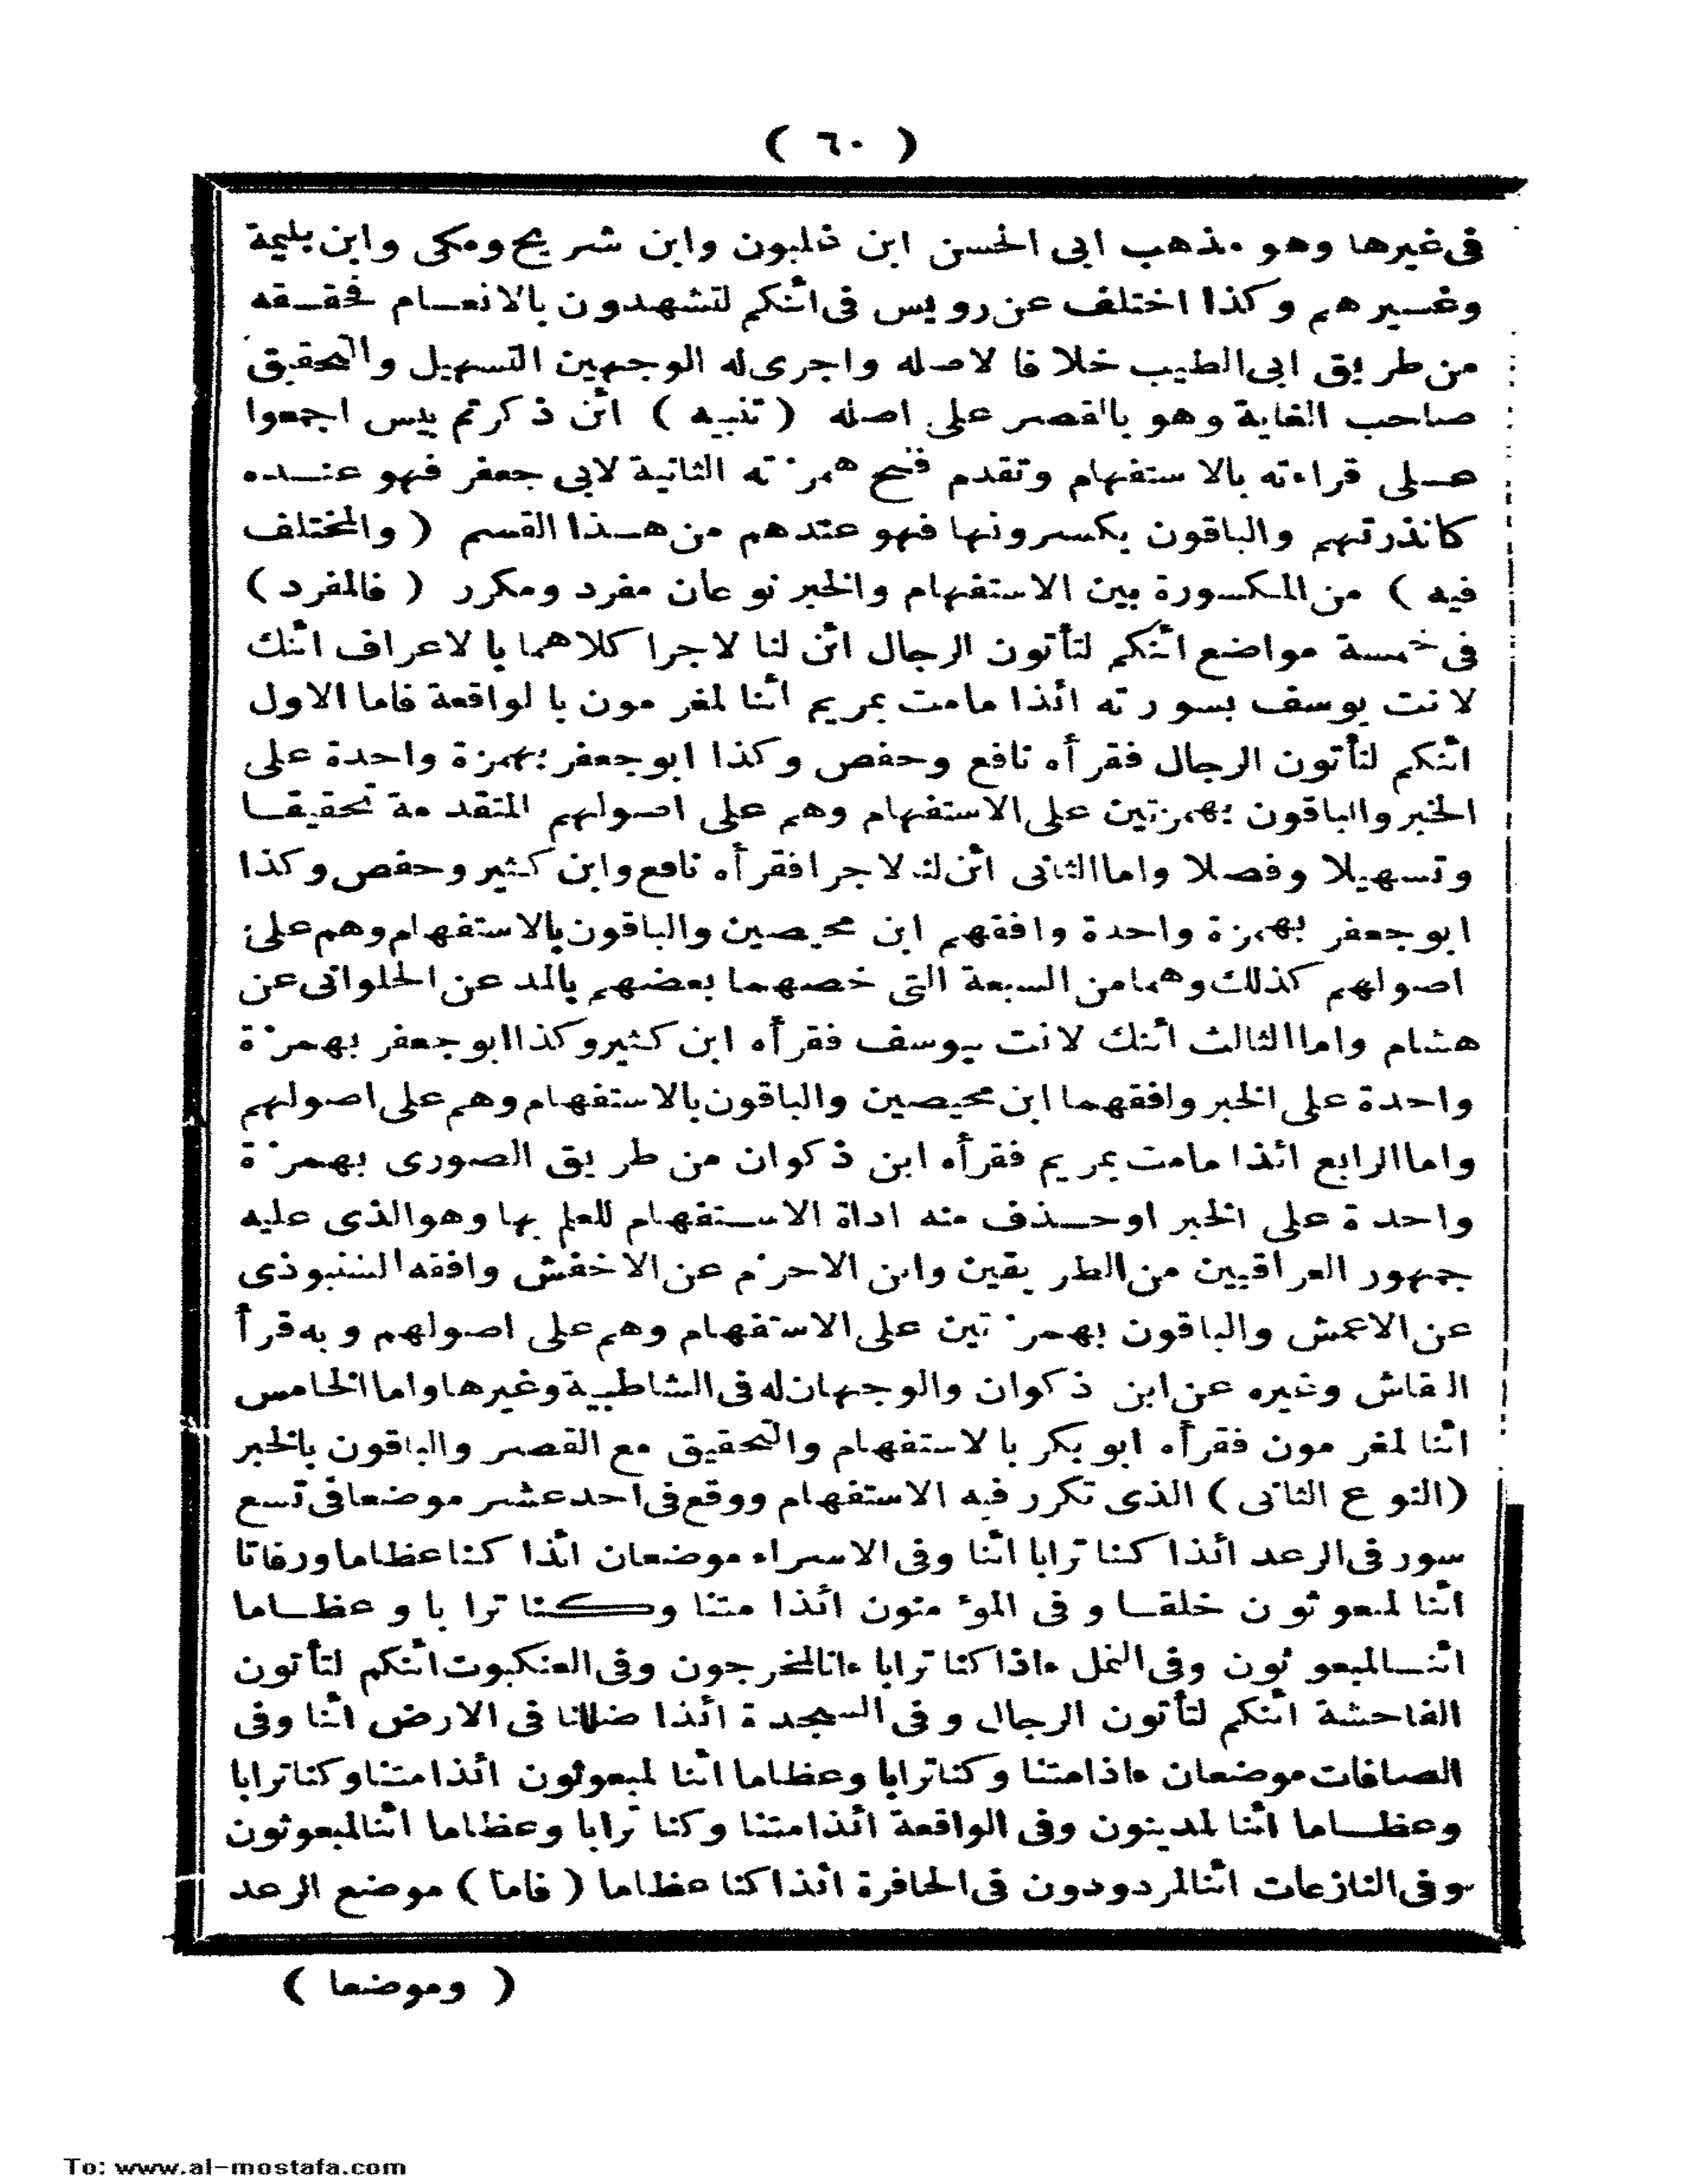 ( ٦٠ )
فى غيرها وهو مذهب ابى الحسن ابن غلبون وابن شريح ومكى وابن بليمة
وغسيرهم وكذا اختلف عن رويس فى ائنكم لتشهدون بالانعام فحققه
من طريق ابى الطيب خلافا لاصله واجرى له الوجهين التسهيل والتحقيق
صاحب الغاية وهو بالقصر على اصله ( تنبيه ) ائن ذكرتم بيس اجمعوا
عـلى قراءته بالاستفهام وتقدم فتح همزته الثانية لابى جعفر فهو عنـده
كانذرتهم والباقون يكسرونها فهو عندهم من هـذا القسم ( والمختلف
فيه ) من المكسورة بين الاستفهام والخبر نوعان مفرد ومكرر ( فالمفرد )
فى خمسة مواضع ائنكم لتأتون الرجال ائن لنا لاجرا كلاهما بالاعراف ائنك
لانت يوسف بسورته ائذا مامت بمريم ائنا لمغرمون بالواقعة فاما الاول
ائنكم لتأتون الرجال فقرأه نافع وحفص وكذا ابوجعفر بهمزة واحدة على
الخبر والباقون بهمزتين على الاستفهام وهم على اصولهم المتقدمة تحقيقا
وتسهيلا وفصلا واما الثانى ائن لنا لاجرا فقرأه نافع وابن كثير وحفص وكذا
ابوجعفر بهمزة واحدة وافقهم ابن محيصين والباقون بالاستفهام وهم على
اصولهم كذلك وهما من السبعة التى خصهما بعضهم بالمد عن الحلوانى عن
هشام واما الثالث ائنك لانت بيوسف فقرأه ابن كثير وكذا ابوجعفر بهمزة
واحدة على الخبر وافقهما ابن محيصين والباقون بالاستفهام وهم على اصولهم
واما الرابع ائذا مامت بمريم فقرأه ابن ذكوان من طريق الصورى بهمزة
واحدة على الخبر اوحـذف منه اداة الاستفهام للعلم بها وهو الذى عليه
جمهور العراقيين من الطريقين وابن الاخرم عن الاخفش وافقه الشنبوذى
عن الاعمش والباقون بهمزتين على الاستفهام وهم على اصولهم وبه قرأ
النقاش وغيره عن ابن ذكوان والوجهان له فى الشاطبية وغيرها واما الخامس
ائنا لمغرمون فقرأه ابوبكر بالاستفهام والتحقيق مع القصر والباقون بالخبر
(النوع الثانى) الذى تكرر فيه الاستفهام ووقع فى احد عشر موضعا فى تسع
سور فى الرعد ائذا كنا ترابا ائنا وفى الاسراء موضعان ائذا كنا عظاما ورفاتا
ائنا لمبعوثون خلقـا وفى المؤمنون ائذا متنا وكـنا ترابا وعظـاما
ائنـالمبعوثون وفى النمل ءاذا كنا ترابا ءانالمخرجون وفى العنكبوت ائنكم لتأتون
الفاحشة ائنكم لتأتون الرجال وفى السجدة ائذا ضللنا فى الارض ائنا وفى
الصافات موضعان ءاذا متنا وكنا ترابا وعظاما ائنا لمبعوثون ائذا متنا وكنا ترابا
وعظـاما ائنا لمدينون وفى الواقعة ائذا متنا وكنا ترابا وعظاما ائنالمبعوثون
وفى النازعات ائنالمردودون فى الحافرة ائذا كنا عظاما ( فاما ) موضع الرعد
( وموضعا )
To: www.al-mostafa.com